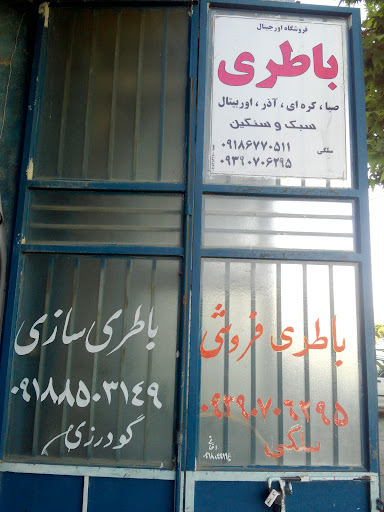 فروشگاه اورجینال
باطری
صبا ، کره ای ، آذر ، اوربیتال
سبک و سنگین
سلگی ۰۹۱۸۶۷۷۰۵۱۱
۰۹۳۹۰۷۰۶۲۹۵
باطری فروشی
۰۹۳۹۰۷۰۶۲۹۵
سلگی
باطری سازی
۰۹۱۸۸۵۰۳۱۴۹
گودرزی